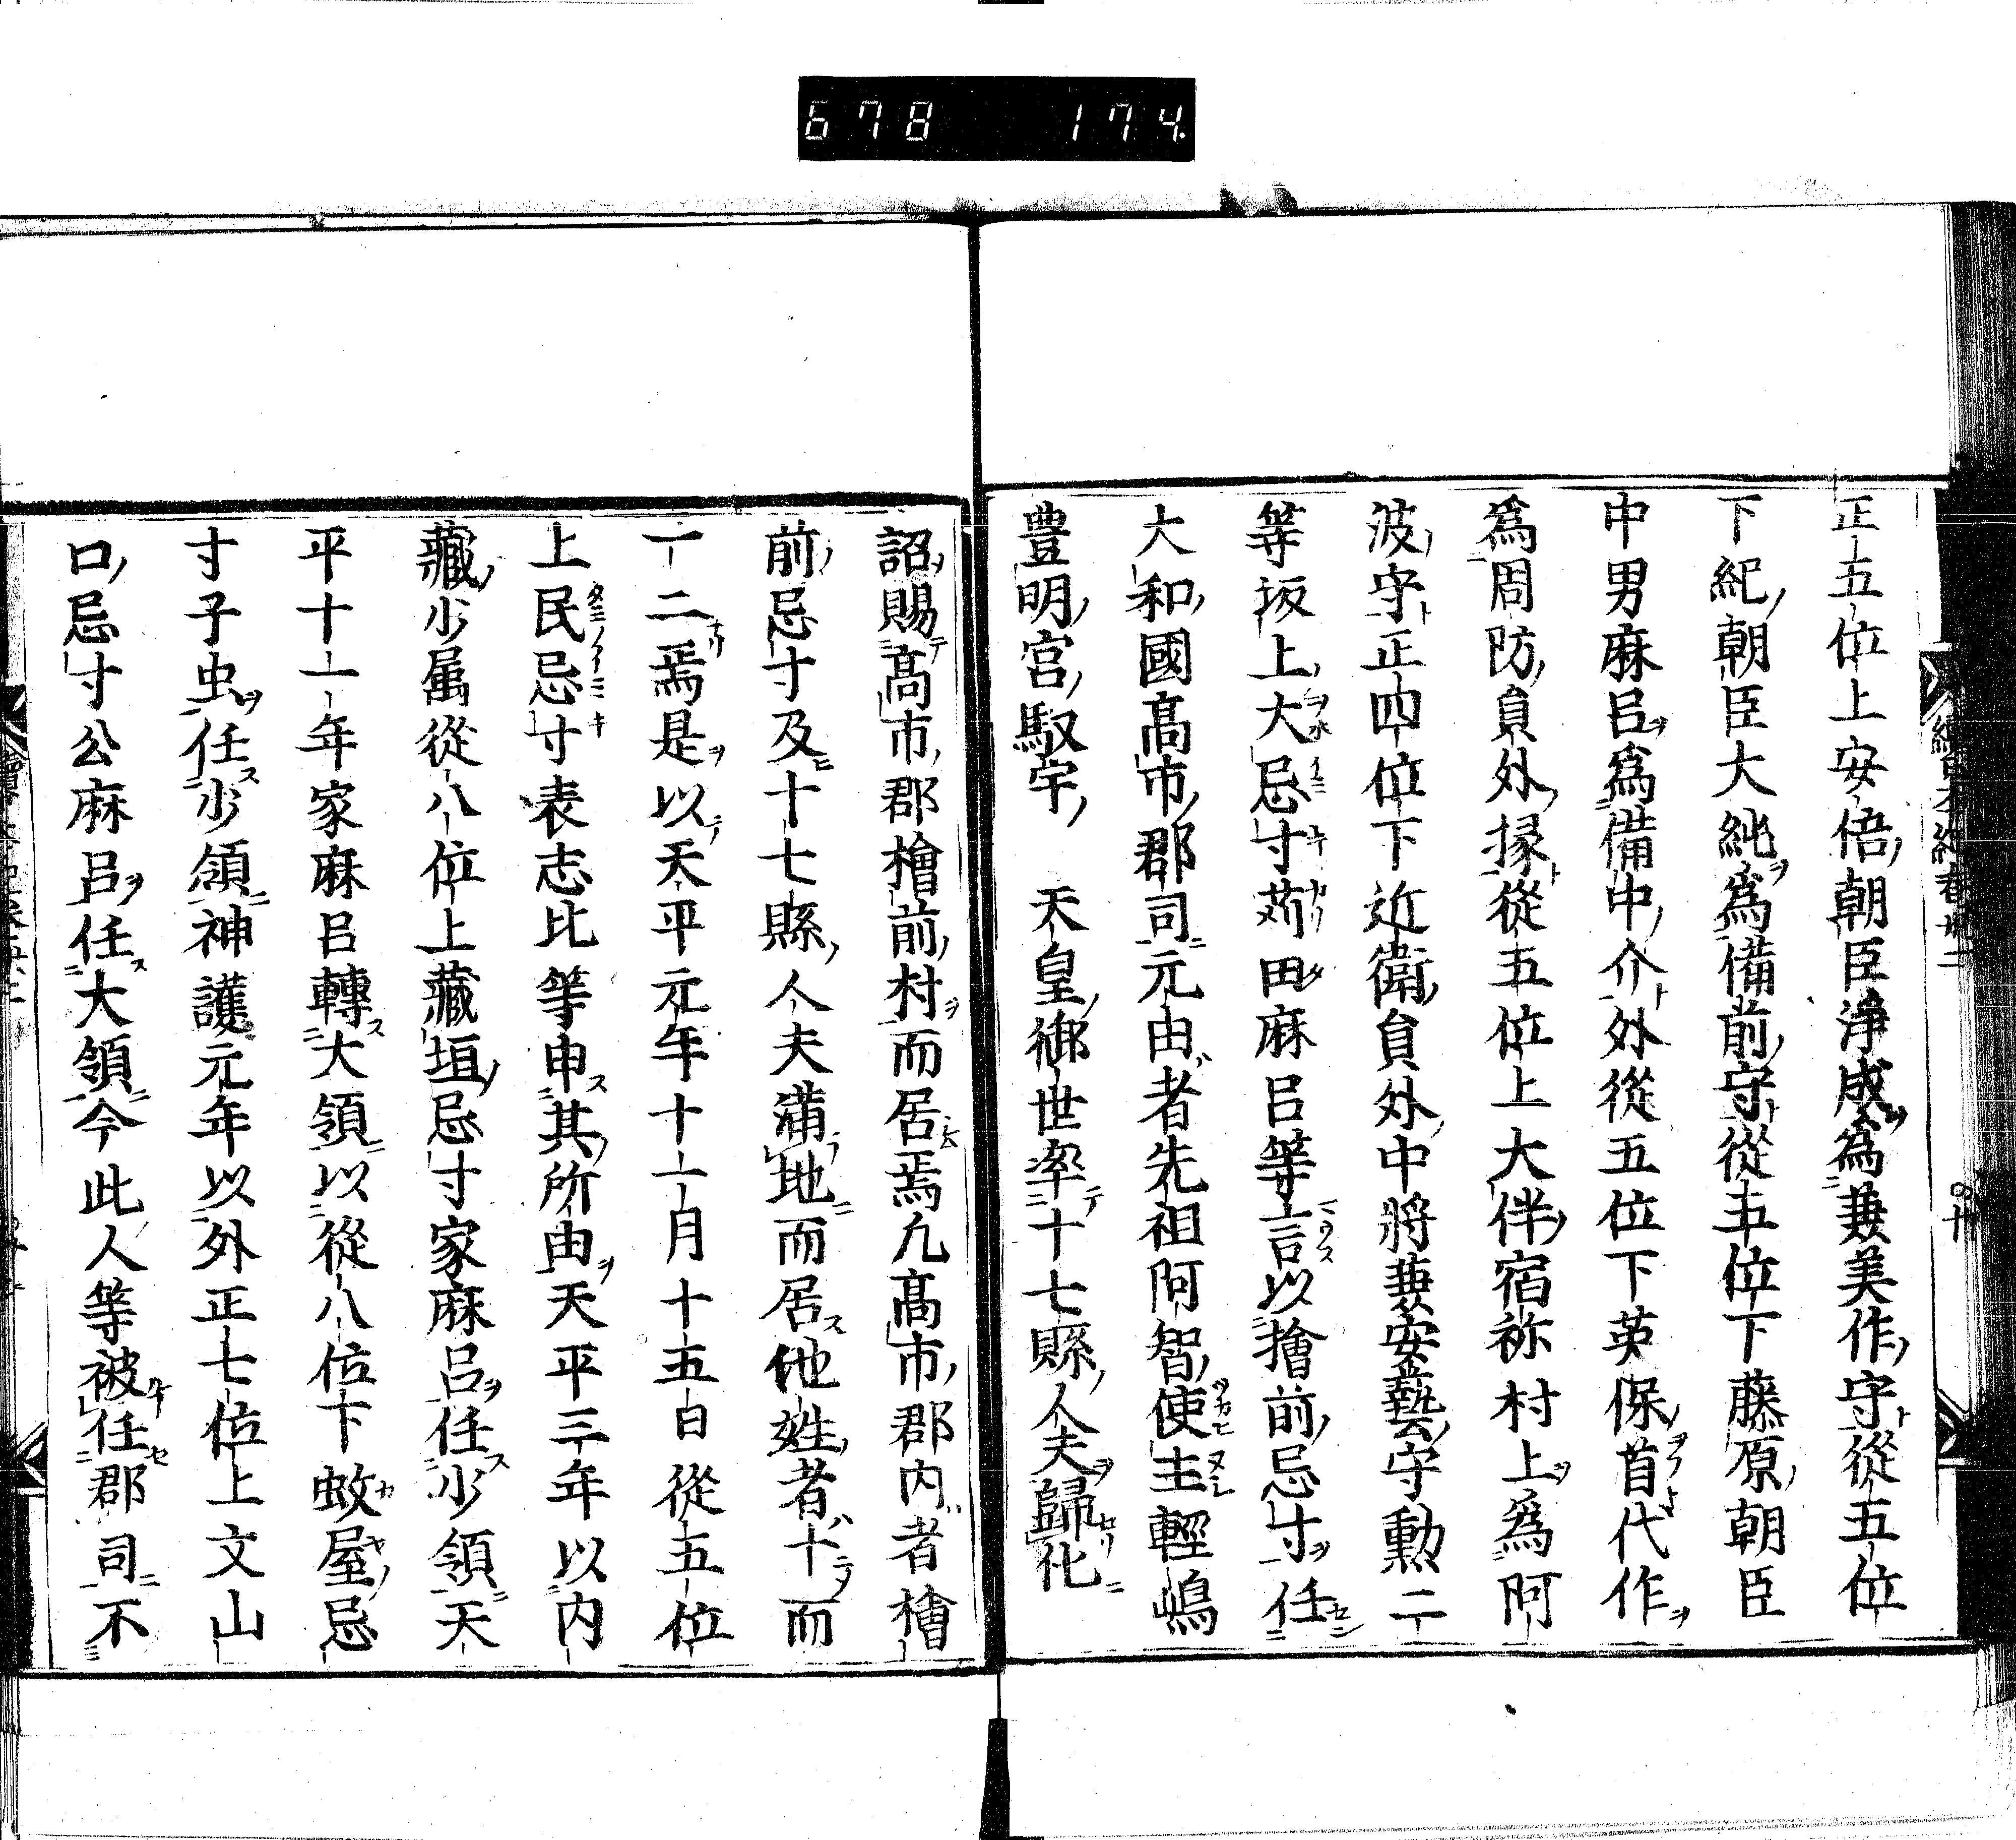 678 174
正五位上安倍朝臣浄成爲兼美作守從五位
下紀朝臣大純爲備前守從五位下藤原朝臣
中男麻呂爲備中介外從五位下英保首代作
爲周防員外掾從五位上大伴宿祢村上爲阿
波守正四位下近衛員外中將兼安藝守勲二
等坂上大忌寸苅田麻呂等言以檜前忌寸任
大和國髙市郡司元由者先祖阿智使主輕嶋
豊明宮馭宇 天皇御世率十七縣人夫歸化
詔賜髙市郡檜前村而居焉凡髙市郡内者檜
前忌寸及十七縣人夫滿地而居他姓者十而
一二焉是以天平元年十一月十五日從五位
上民忌寸表志比等申其所由天平三年以内
藏少属從八位上藏垣忌寸家麻呂任少領天
平十一年家麻呂轉大領以從八位下蚊屋忌
寸子虫任少領神護元年以外正七位上文山
口忌寸公麻呂任大領今此人等被任郡司不